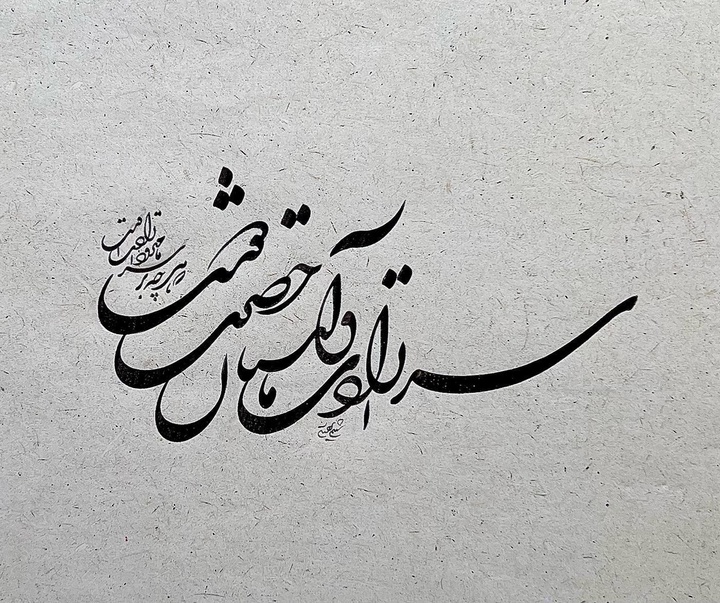 سر ارادت ما و آستان حضرت دوست
که هر چه بر سر ما میرود ارادت اوست